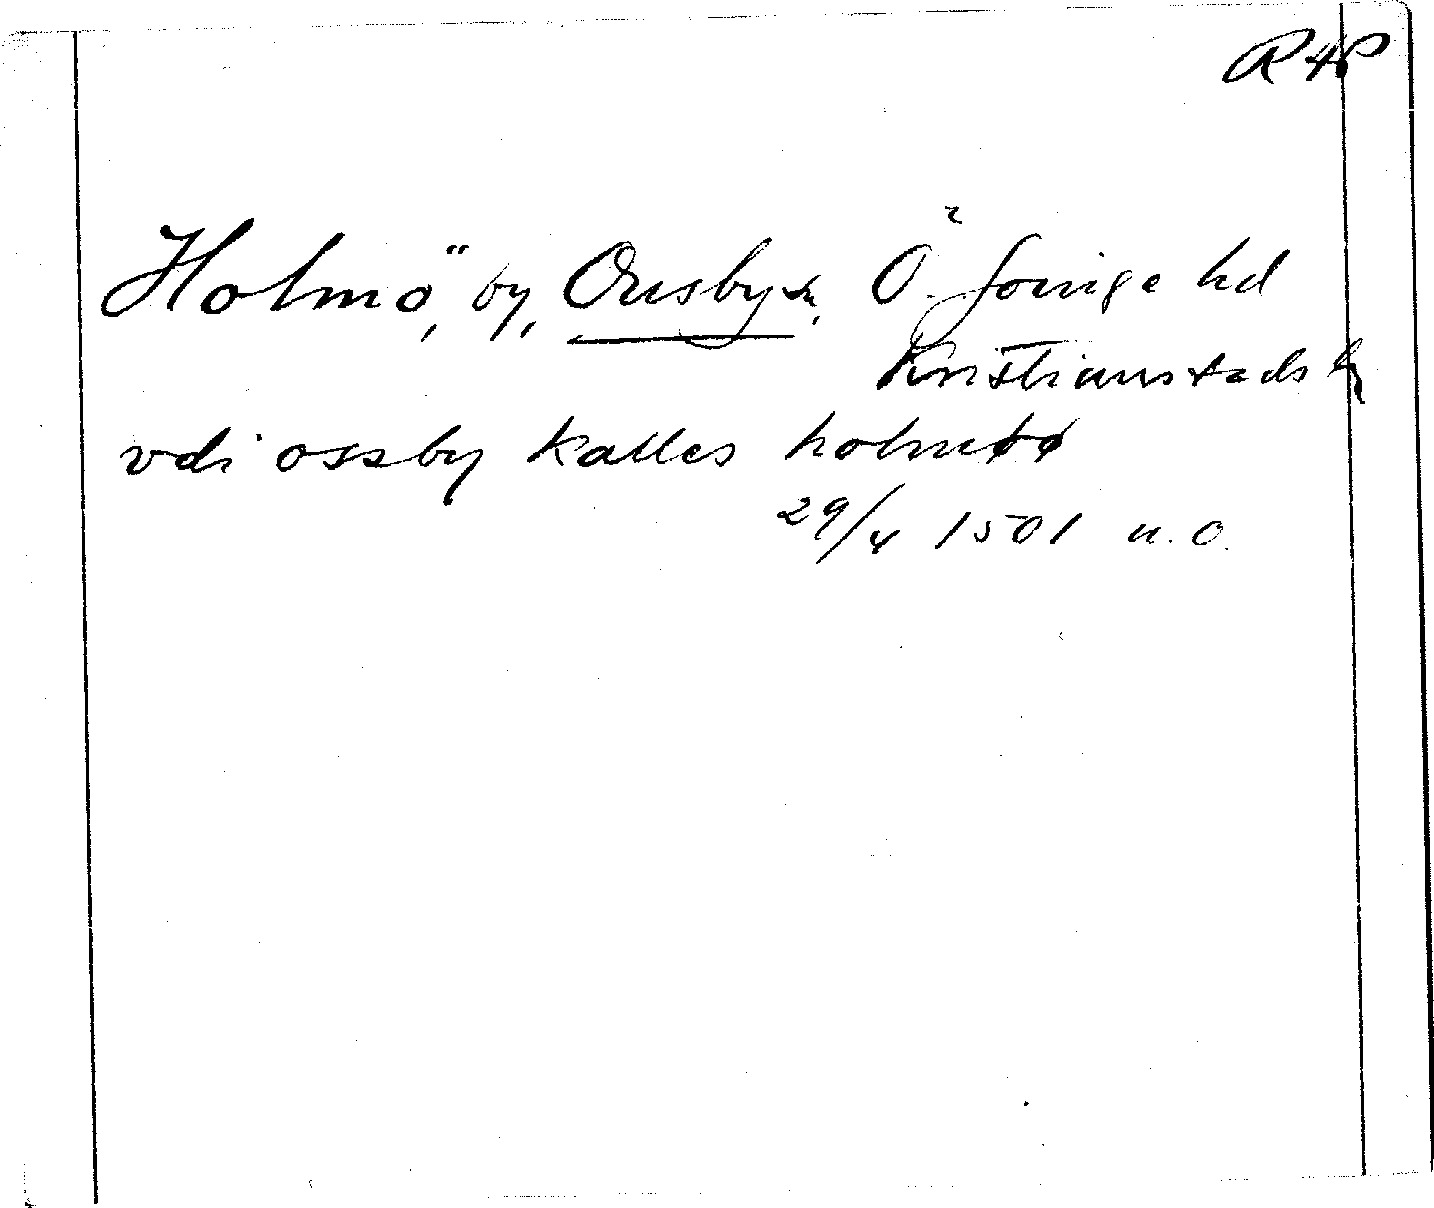 RAP
Holmö, by, Ousby sn, Ö. Göinge hd
Kristianstads l.
vdi ossby kalles holmøø
29/4 1501 u.o.